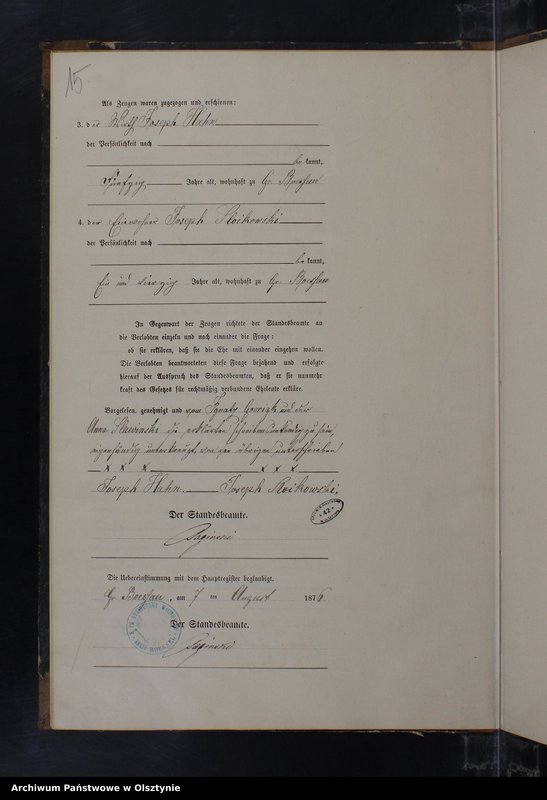 15
Als Zeugen waren zugezogen und erschienen:
3. der Wirth Joseph Hahn
der Persönlichkeit nach
be kannt,
fünfzig Jahre alt, wohnhaft zu Gr.
4. der Einwohner Joseph Roikowski
der Persönlichkeit nach
be kannt,
Ein und vierzig Jahre alt, wohnhaft zu Gr.
In Gegenwart der Zeugen richtete der Standesbeamte an
die Verlobten einzeln und nach einander die Frage:
ob sie erklären, daß sie die Ehe mit einander eingehen wollen.
Die Verlobten beantworteten diese Frage bejahend und erfolgte
hierauf der Ausspruch des Standesbeamten, daß er sie nunmehr
kraft des Gesetzes für rechtmäßig verbundene Eheleute erkläre.
Vorgelesen, genehmigt und vom Ignatz und der
Anna die erklärten Schreibens unkundig zu sein,
eigenhändig unterkreuzt, von den übrigen unterschrieben
x x x x x x
Joseph Hahn. Joseph Roikowski.
42
Der Standesbeamte.
Die Uebereinstimmung mit dem Hauptregister beglaubigt.
Gr. am 7 ten August 1876
Der Standesbeamte.
Archiwum Państwowe w Olsztynie